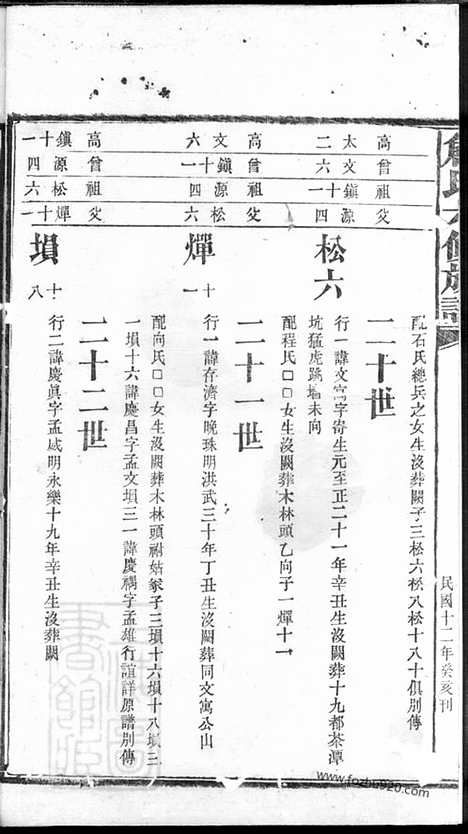 民國十二年癸亥刊
高 太二
曾 文六
祖 鎮十一
父 源四
高 文六
曾 鎮十一
祖 源四
父 松六
高 鎮十一
曾 源四
祖 松六
父 燀十一
配石氏總兵之女生沒闕葬闕子三松六松八松十八十俱別傳
二十世
松六
行一諱文寓字寄生元至正二十一年辛丑生沒闕葬十九都茶潭
坑猛虎跳墻未向
配程氏□□女生沒闕葬木林頭乙向子一燀十一
二十一世
燀十一
行一諱存濟字晚珠明洪武三十年丁丑生沒闕葬同文寓公山
配向氏□□女生沒闕葬木林頭祔姑冢子三塤十六塤十八塤三
一塤十六諱慶昌字孟文塤三一諱慶禑字孟雄行誼詳原譜別傳
二十二世
塤十八
行二諱慶眞字孟威明永樂十九年辛丑生沒葬闕
www.fozhu920.com